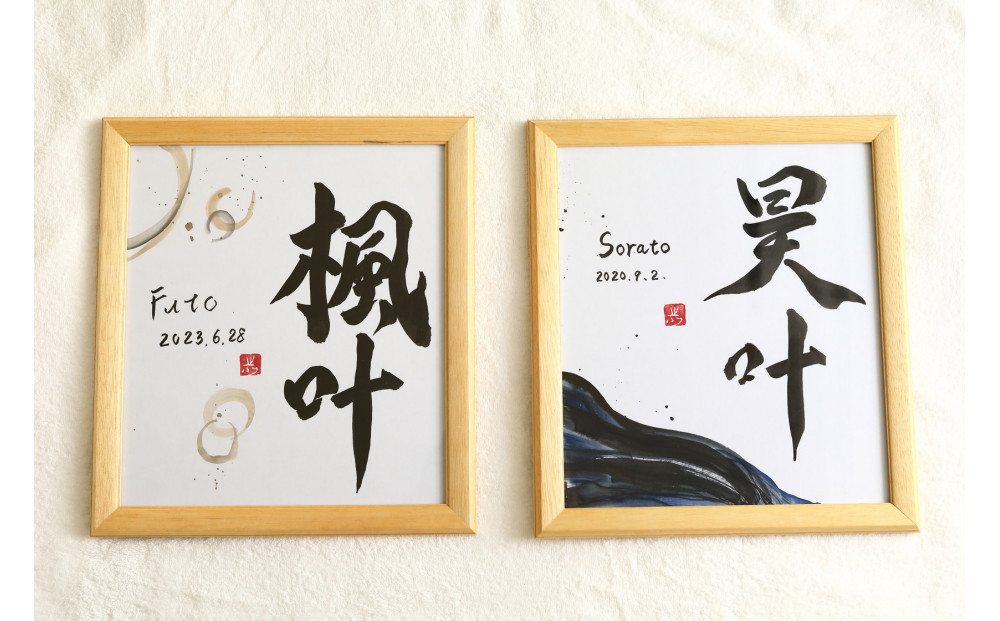 楓叶
Futo
2023.6.28
昊叶
Sorato
2020.9.2.